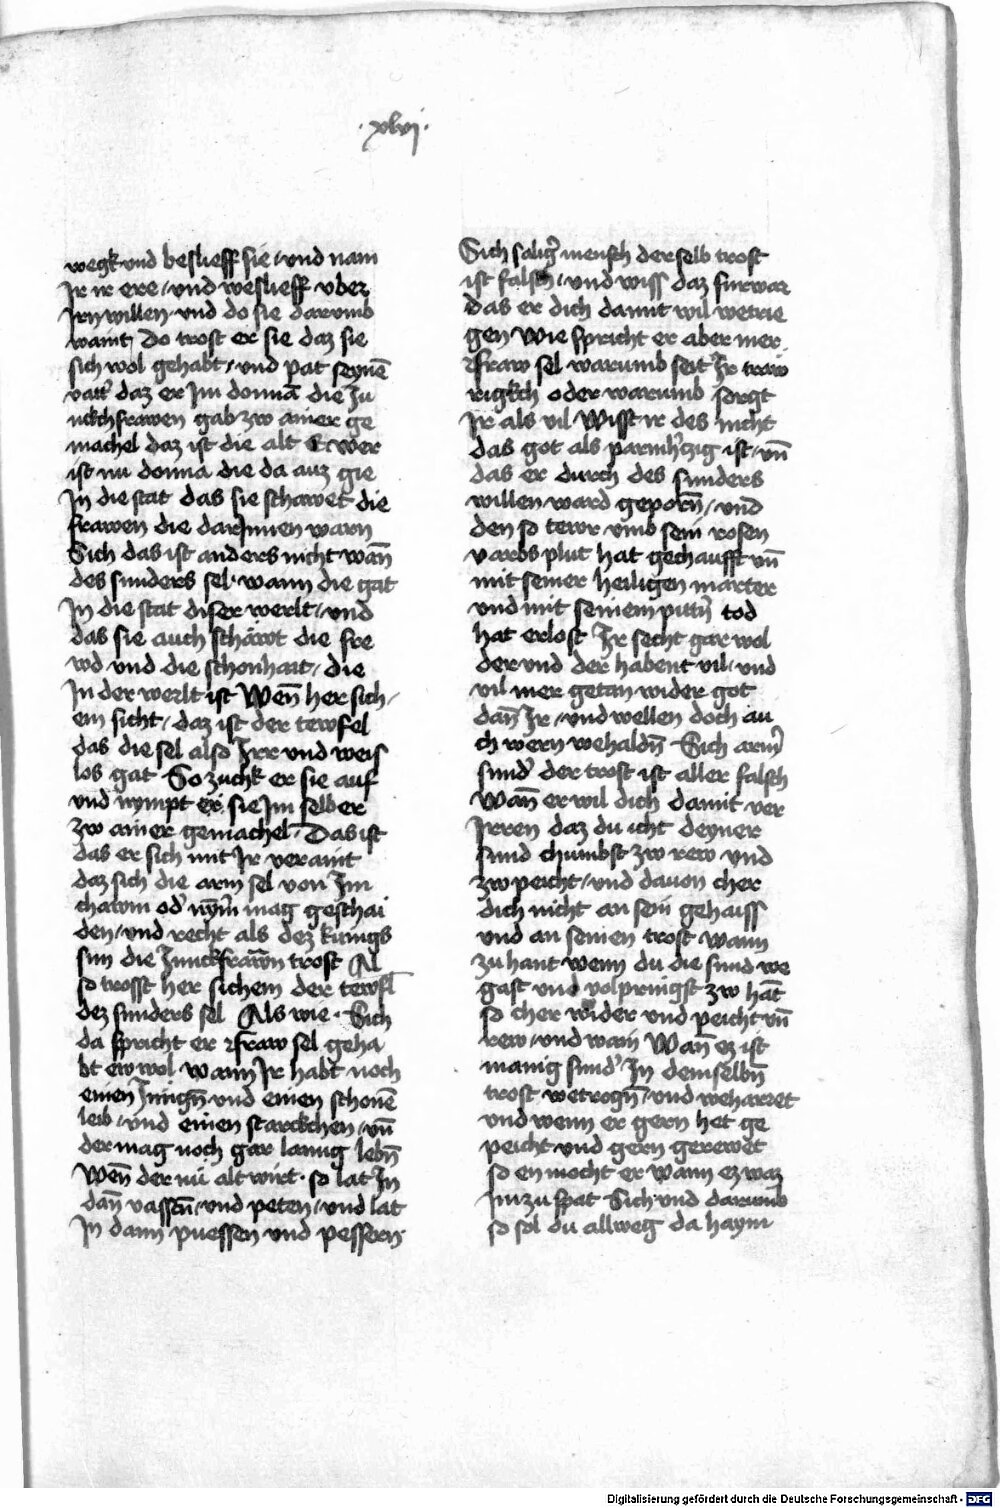 ·xlvj·
wegk vnd beslieff sie / vnd nam
Ir ir ere / vnd weslieff vber
Irn willen vnd do sie darumb
waint Do trost er sie daz sie
sich wol gehabt / vnd pat seynē
vatt' daz er Im donnā die Ju
nckhfrawen gab zw ainer ge
machel daz ist die alt E wer
ist nu donna die da auz gie
In die stat das sie schawet die
frawen die darInnen warn
Sich das ist anders nicht wan̄
des sunders sel · wann die gat
In die stat diser werlt / vnd
das sie auch schawt die fre
wd vnd die schonhait / die
In der werlt ist Wen̄ her sich /
em sicht / daz ist der tewfel
das die sel also Irr vnd weis
los gat So zuchk er sie auf
vnd nympt er sie Im selber
zw ainer gemachel · Das ist
das er sich mit Ir veraint
daz sich die arm sel von Im
chawm od' nym̄ mag geschai
den / vnd recht als dez kunigs
sun die Junckfrawn̄ trost Al
so trosst her sichem der tewfl
dez sunders sel Als wie · Sich
da spricht er fraw sel geha
bt ew wol wann Ir habt noch
einen Jungn̄ vnd einen schonē
leib / vnd einen starckchen / vn̄
der mag noch gar lanng lebn̄
Wen̄ der nu alt wirt · so lat In
dan̄ vassen̄ / vnd peten / vnd lat
In dann puessen vnd pessern
Sich salig' mensch derselb trost
ist falsch / vnd wiss daz furwar
das er dich damit wil wetrie
gen Wie spricht er aber mer
fraw sel warumb seit Ir traw
rigkch oder warumb sorgt
Ir als vil Wisst ir des nicht
das got als parmh'czig ist / vn̄
das er durch des sunders
willen ward geporn̄ / vnd
den so tewr vmb sein rosen
varbs plut hat gechaufft vn̄
mit seiner heiligen marter
vnd mit seinem pittn̄ tod
hat erlost Ir secht gar wol
der vnd der habent vil / vnd
vil mer getan wider got
dan̄ Ir / vnd wellen doch au
ch wern wehaldn̄ Sich arm'
sund' der trost ist aller falsch
Wan̄ er wil dich damit ver
Irren daz du icht deyner
sund chumbst zw rew vnd
zw peicht / vnd dauon cher
dich nicht an sein gehaiss
vnd an seinen trost wann
zu hant wenn du die sund we
gast vnd volpringst zw hāt
so cher wider vnd peicht vn̄
rew / vnd wain Wan̄ ez ist
manig sund' In demselbn̄
trost wetrogn̄ / vnd weharret
vnd wenn er gern het ge
peicht vnd gern gerewet
so en mocht er wann ez waz
Im zu spat Sich vnd darumb
so sol du allweg da haym
Digitalisierung gefördert durch die Deutsche Forschungsgemeinschaft - DFG